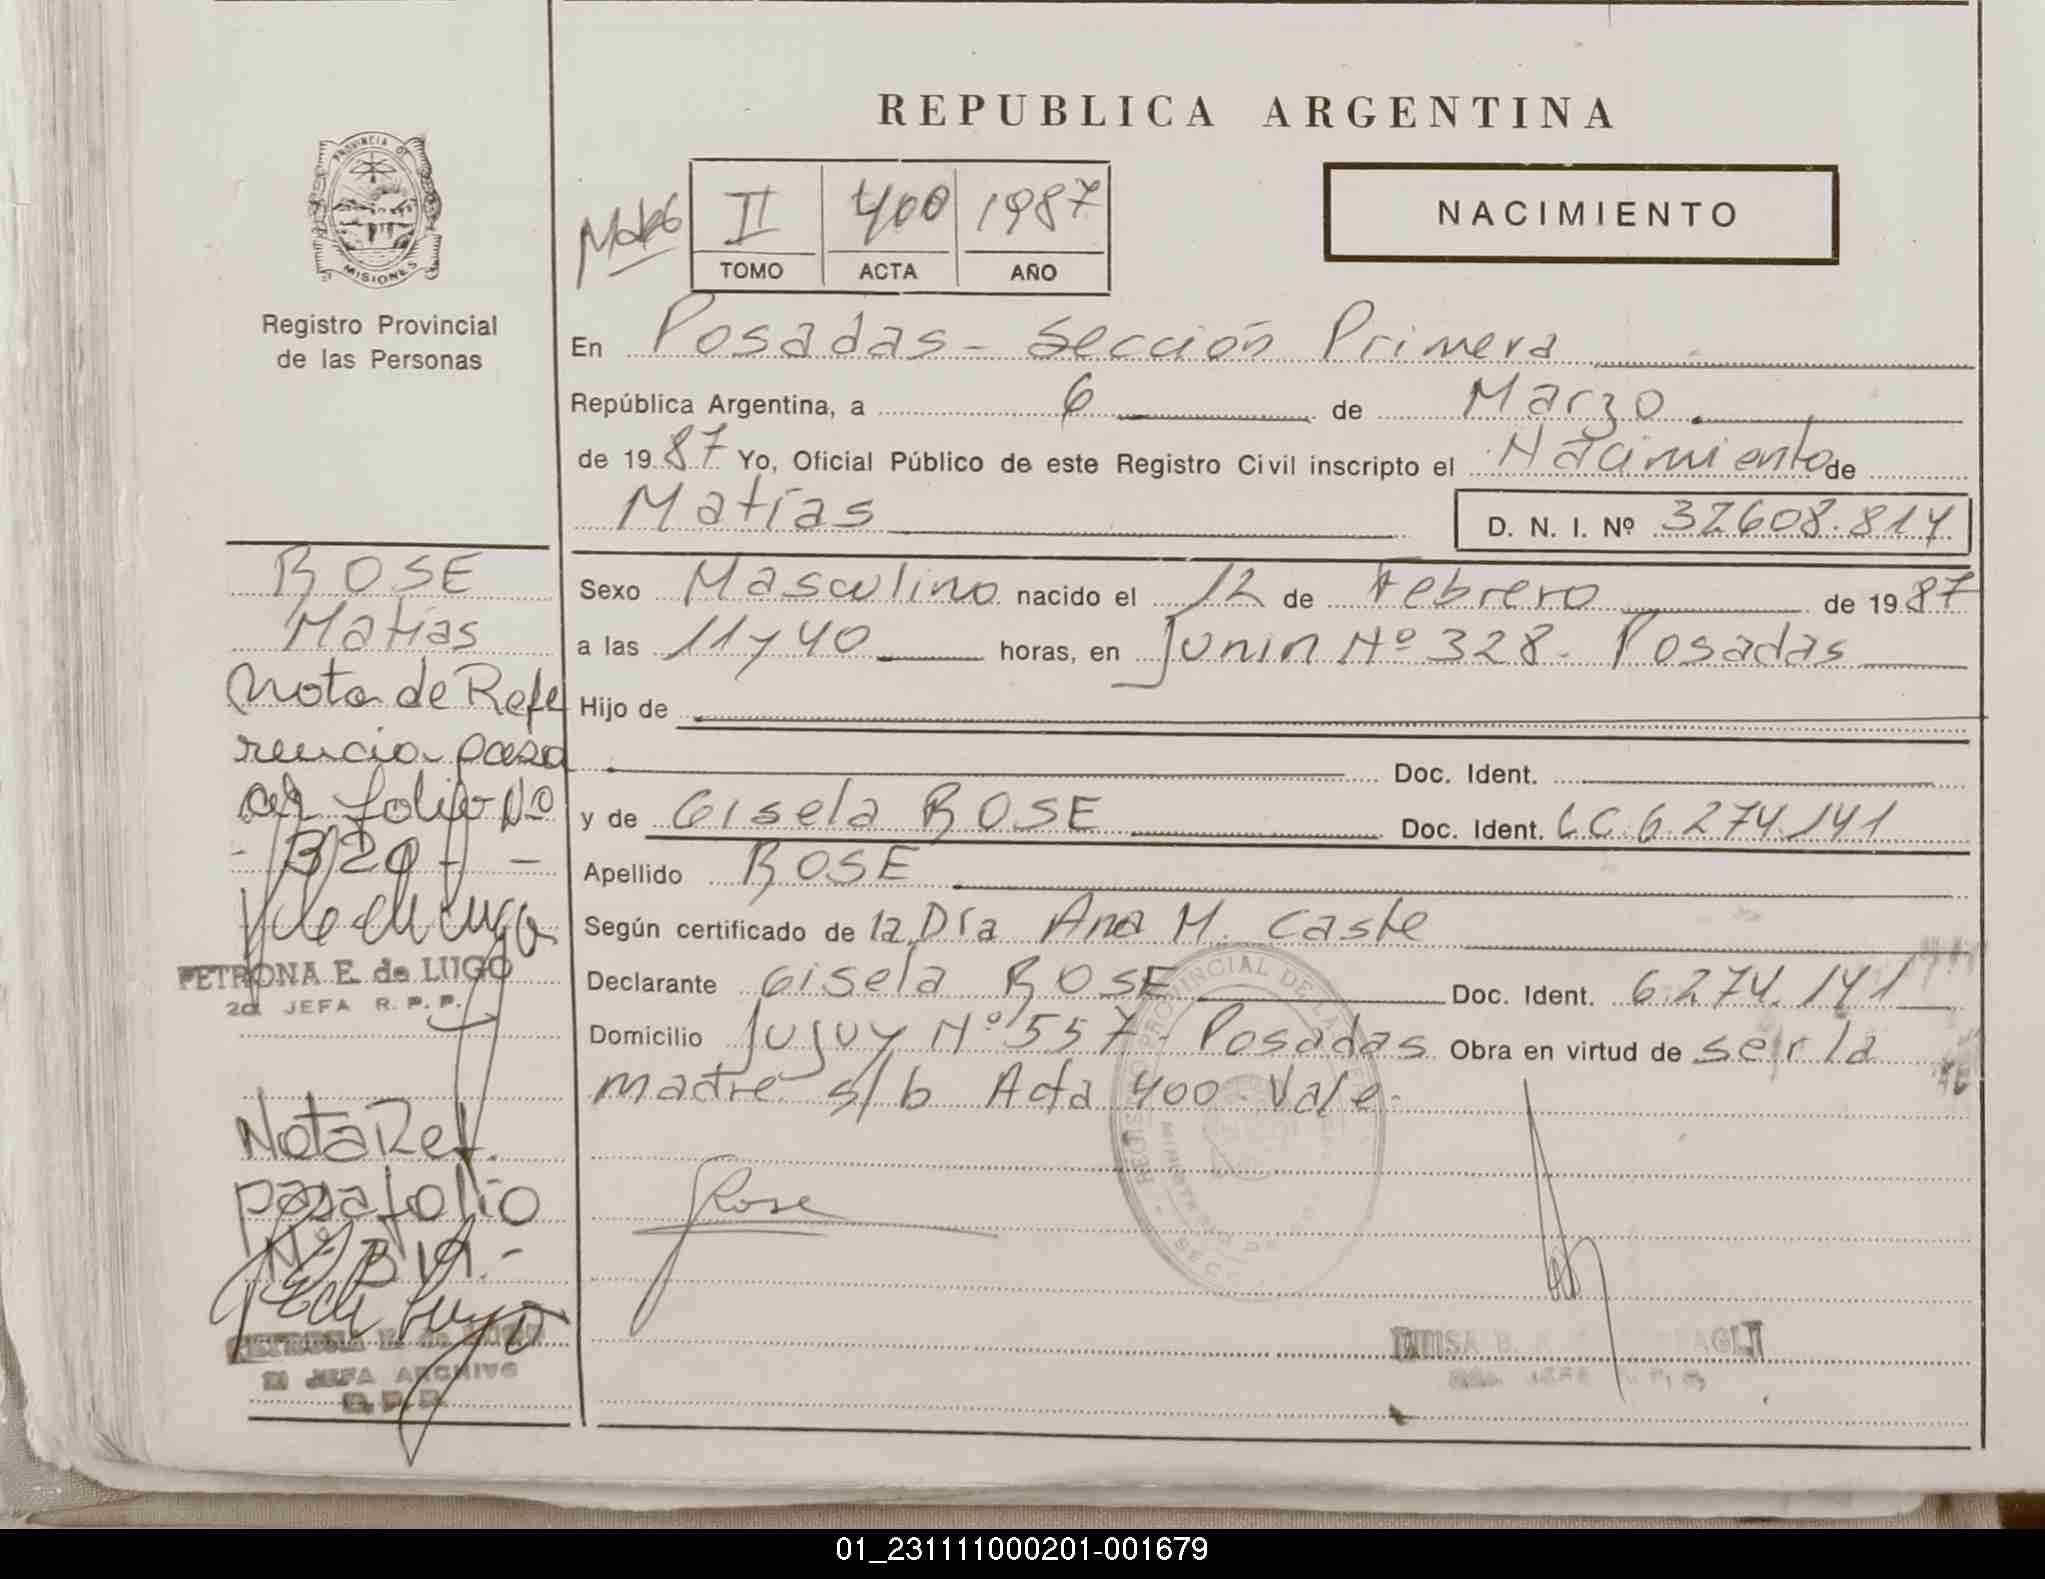 REPUBLICA ARGENTINA
PROVINCIA DE
MISIONES
Registro Provincial
de las Personas
II 400 1987
TOMO ACTA AÑO
NACIMIENTO
En Posadas - Sección Primera
República Argentina, a 6 de Marzo
de 1987 Yo, Oficial Público de este Registro Civil inscripto el Nacimiento de
Matías
D. N. I. Nº 32608.814
Sexo Masculino nacido el 12 de Febrero de 1987
a las 11 y 40 horas, en Junin Nº 328 - Posadas
Hijo de
Doc. Ident.
y de Gisela ROSE Doc. Ident. LC 6.274.141
Apellido ROSE
Según certificado de la Dra Ana M. Caste
Declarante Gisela ROSE Doc. Ident. 6.274.141
Domicilio Jujuy Nº 557 - Posadas Obra en virtud de ser la
madre s/b Acta 400 Vale.-
GRose
ROSE
Matías
Nota de Refe
rencia pasa
al folio Nº
- 320 - -
PETRONA E. de LUGO
2a JEFA R. P. P.
Nota Ref.
pasa folio
Nº
JEFA ARCHIVO
R. P. P.
01_231111000201-001679